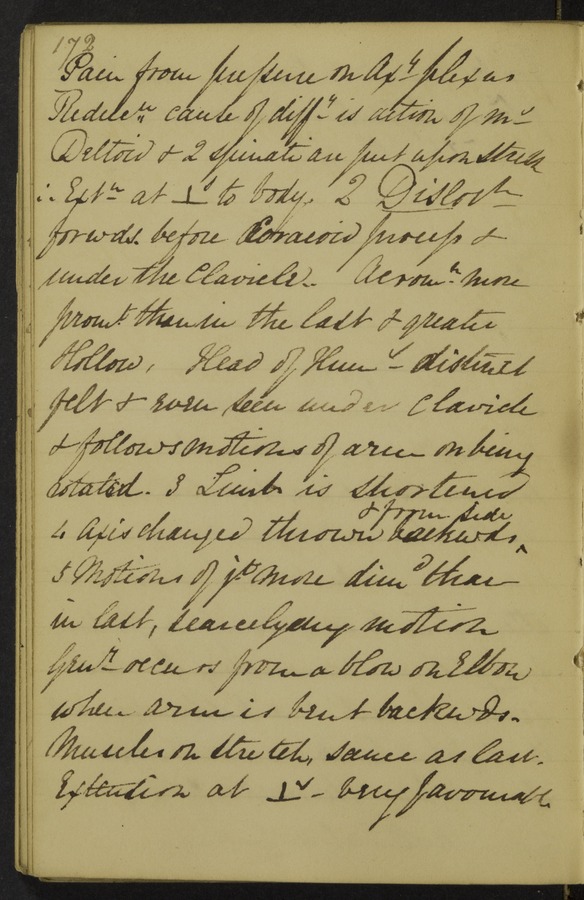 172
Pain from pressure on Axy plexus
Reducn cause of diffy is action of ms
Deltoid & 2 spinati are put upon stretch
∴ Extn at ⊥r to body. 2 Dislocn
forwds. before Coracoid process &
under the Clavicle. Acromn more
promt than in the last & greater
Hollow, Head of Humr distinct
felt & even seen under Clavicle
& follows motions of arm on being
rotated. 3 Limb is shortened
& from side
4 Axis changed thrown backwds ^
5 Motions of jt more dimd than
in last, scarcely any motion
Genly occurs from a blow on Elbow
when arm is bent backwds.
Muscles on stretch, same as last.
Extension at ⊥r very favourable